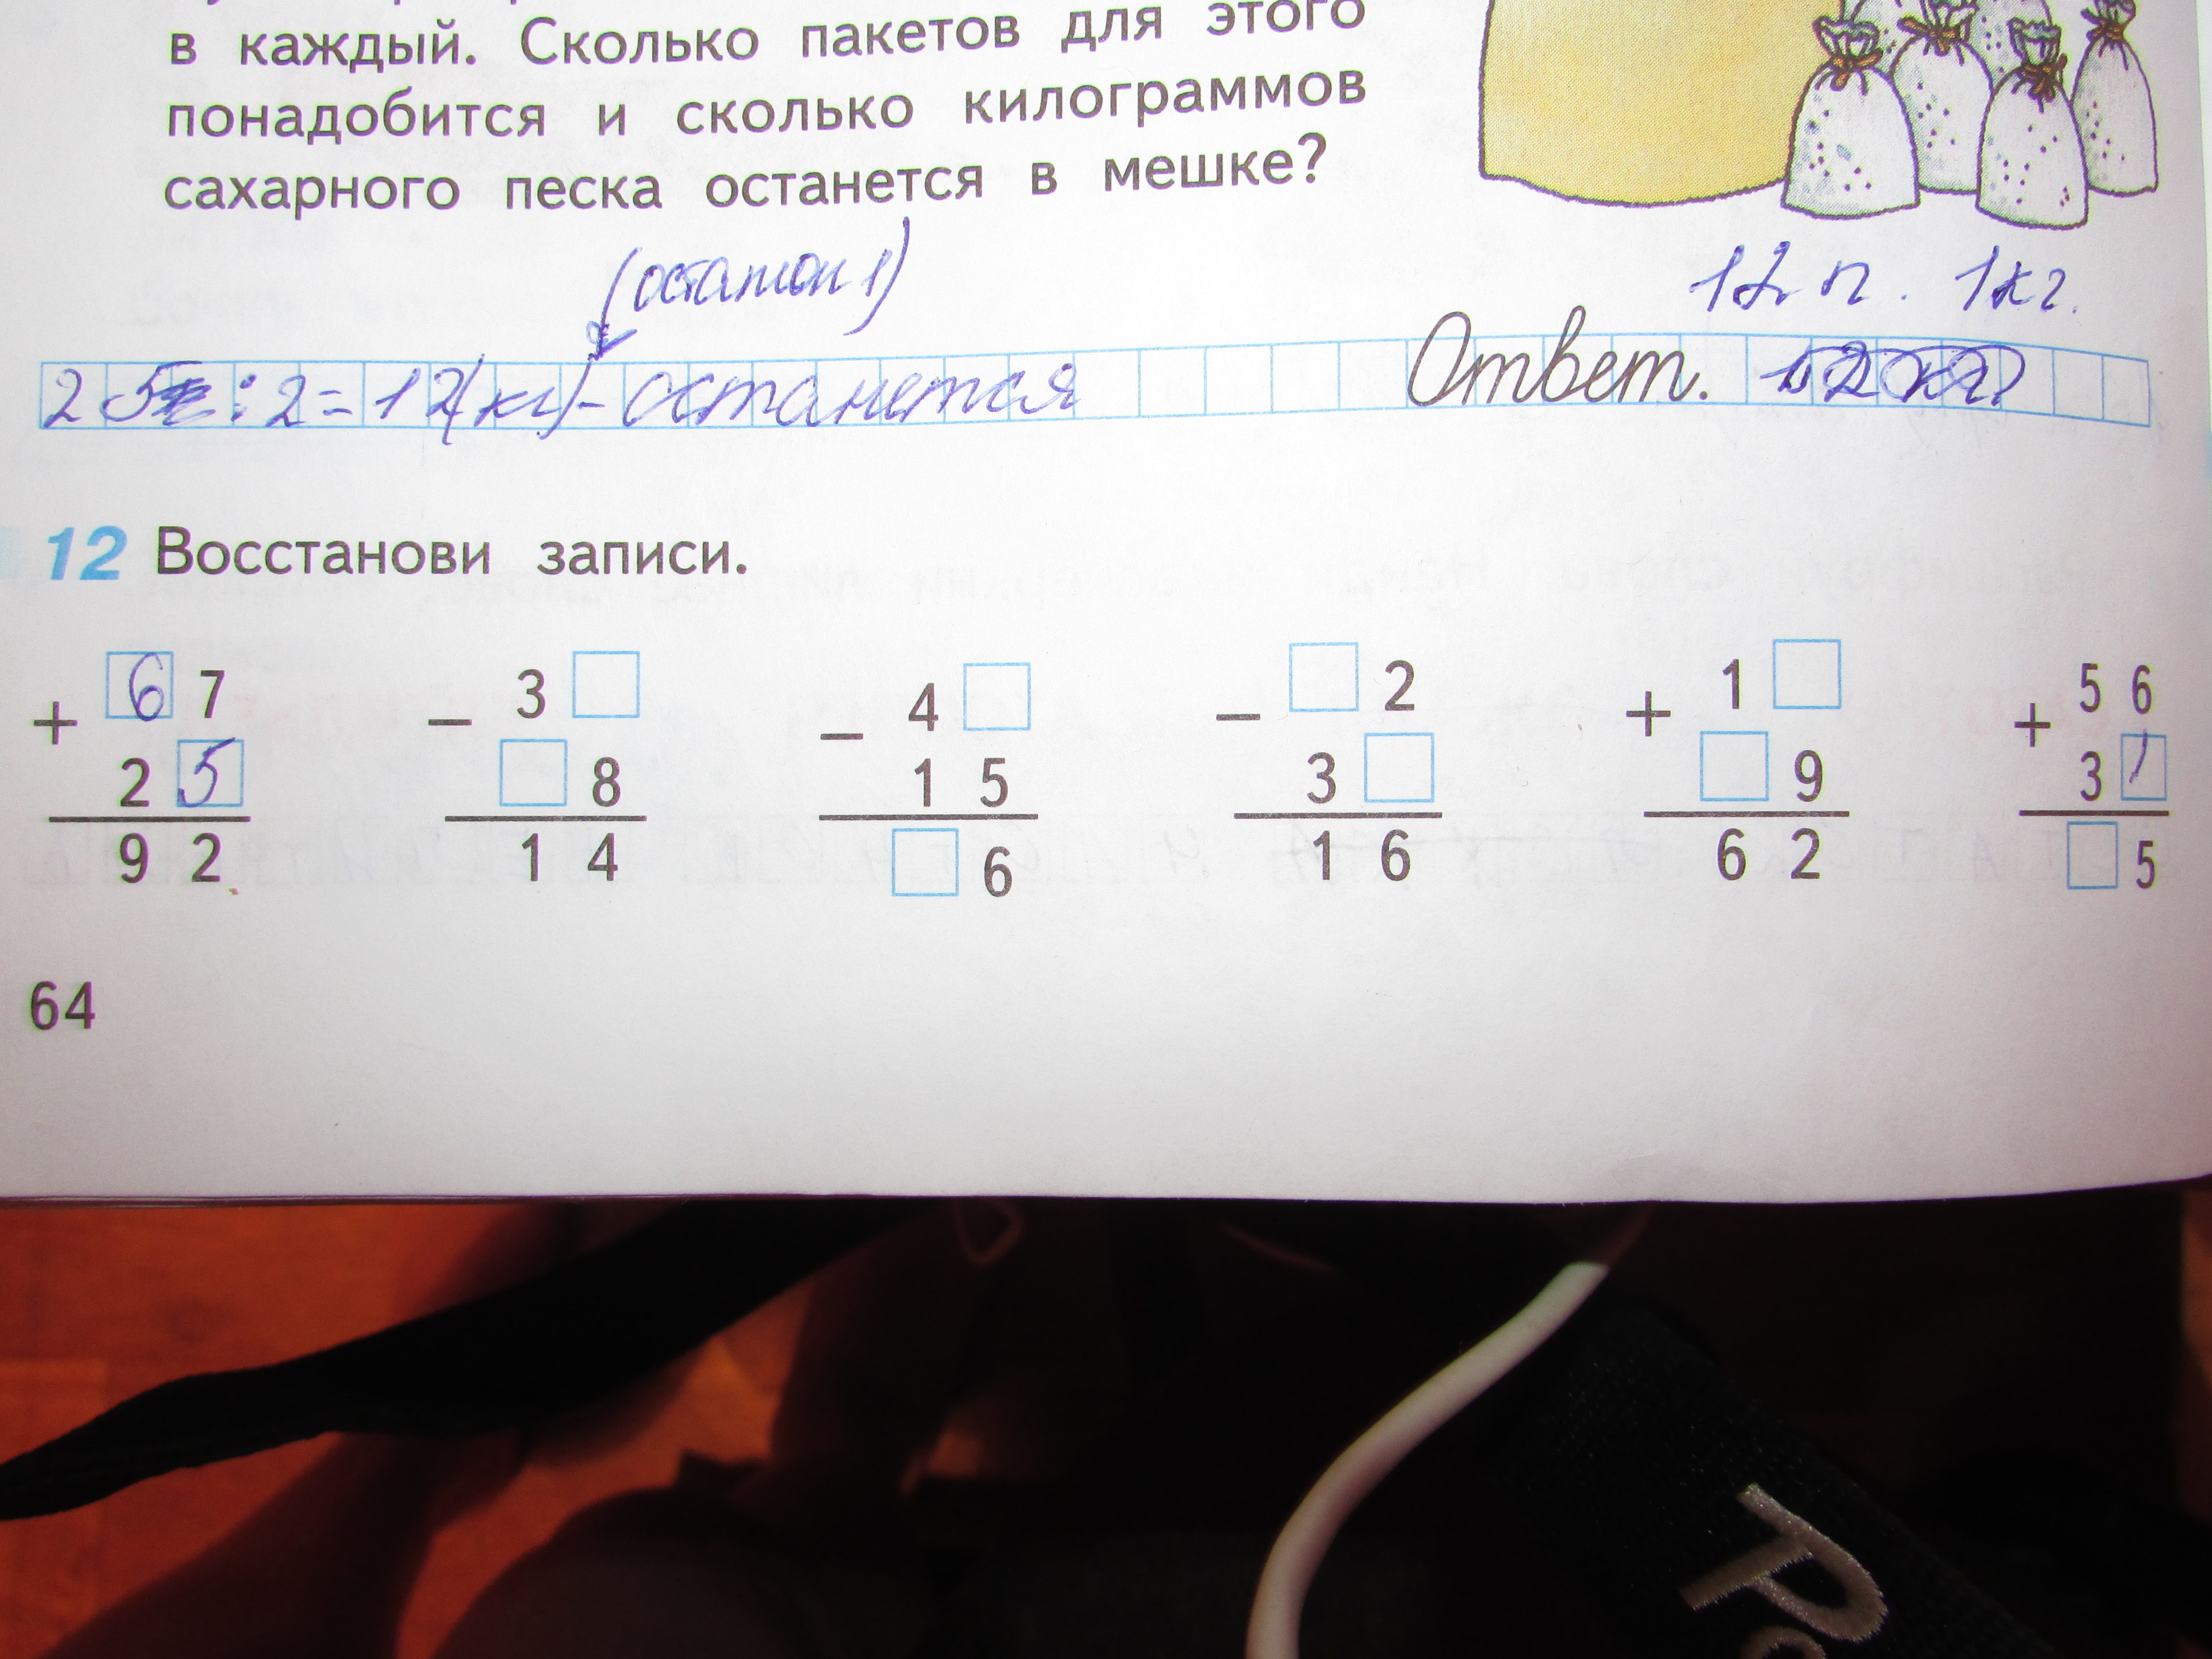 в каждый. Сколько пакетов для этого
понадобится и сколько килограммов
сахарного песка останется в мешке?
(остаток 1)
12 п. 1кг.
25 : 2 = 12(кг) - останется
Ответ.
12 Восстанови записи.
+ 6 7
2 5
9 2
− 3 □
□ 8
1 4
− 4 □
1 5
□ 6
− □ 2
3 □
1 6
+ 1 □
□ 9
6 2
+ 5 6
3 1
□ 5
64